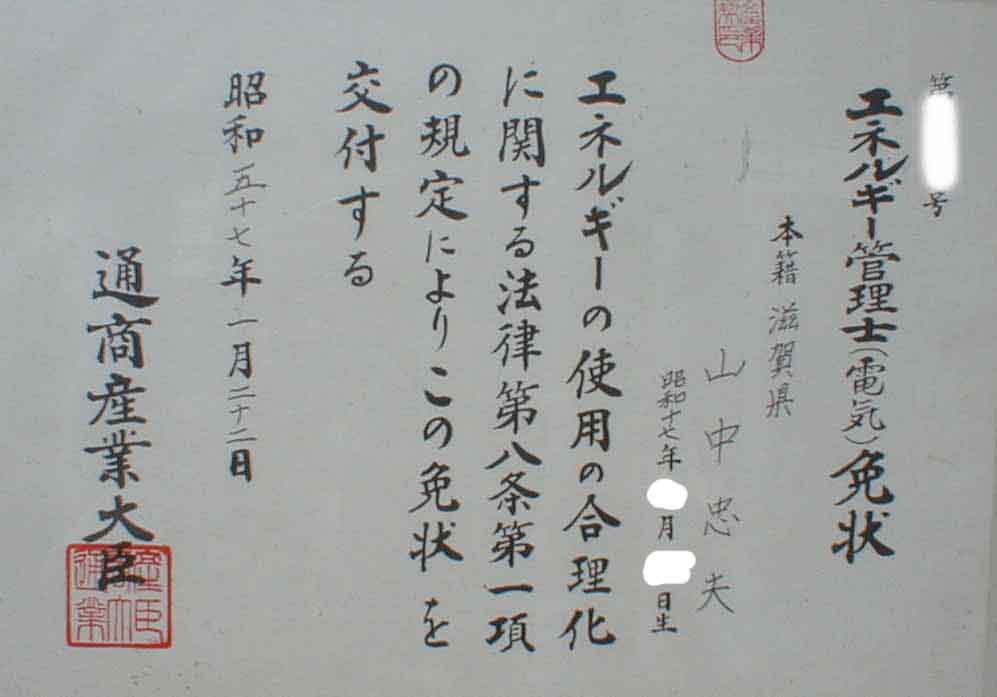 第 号
エネルギー管理士(電気)免状
本籍 滋賀県
山中忠夫
昭和十七年 月 日生
エネルギーの使用の合理化
に関する法律第八条第一項
の規定によりこの免状を
交付する
昭和五十七年一月二十二日
通商産業大臣